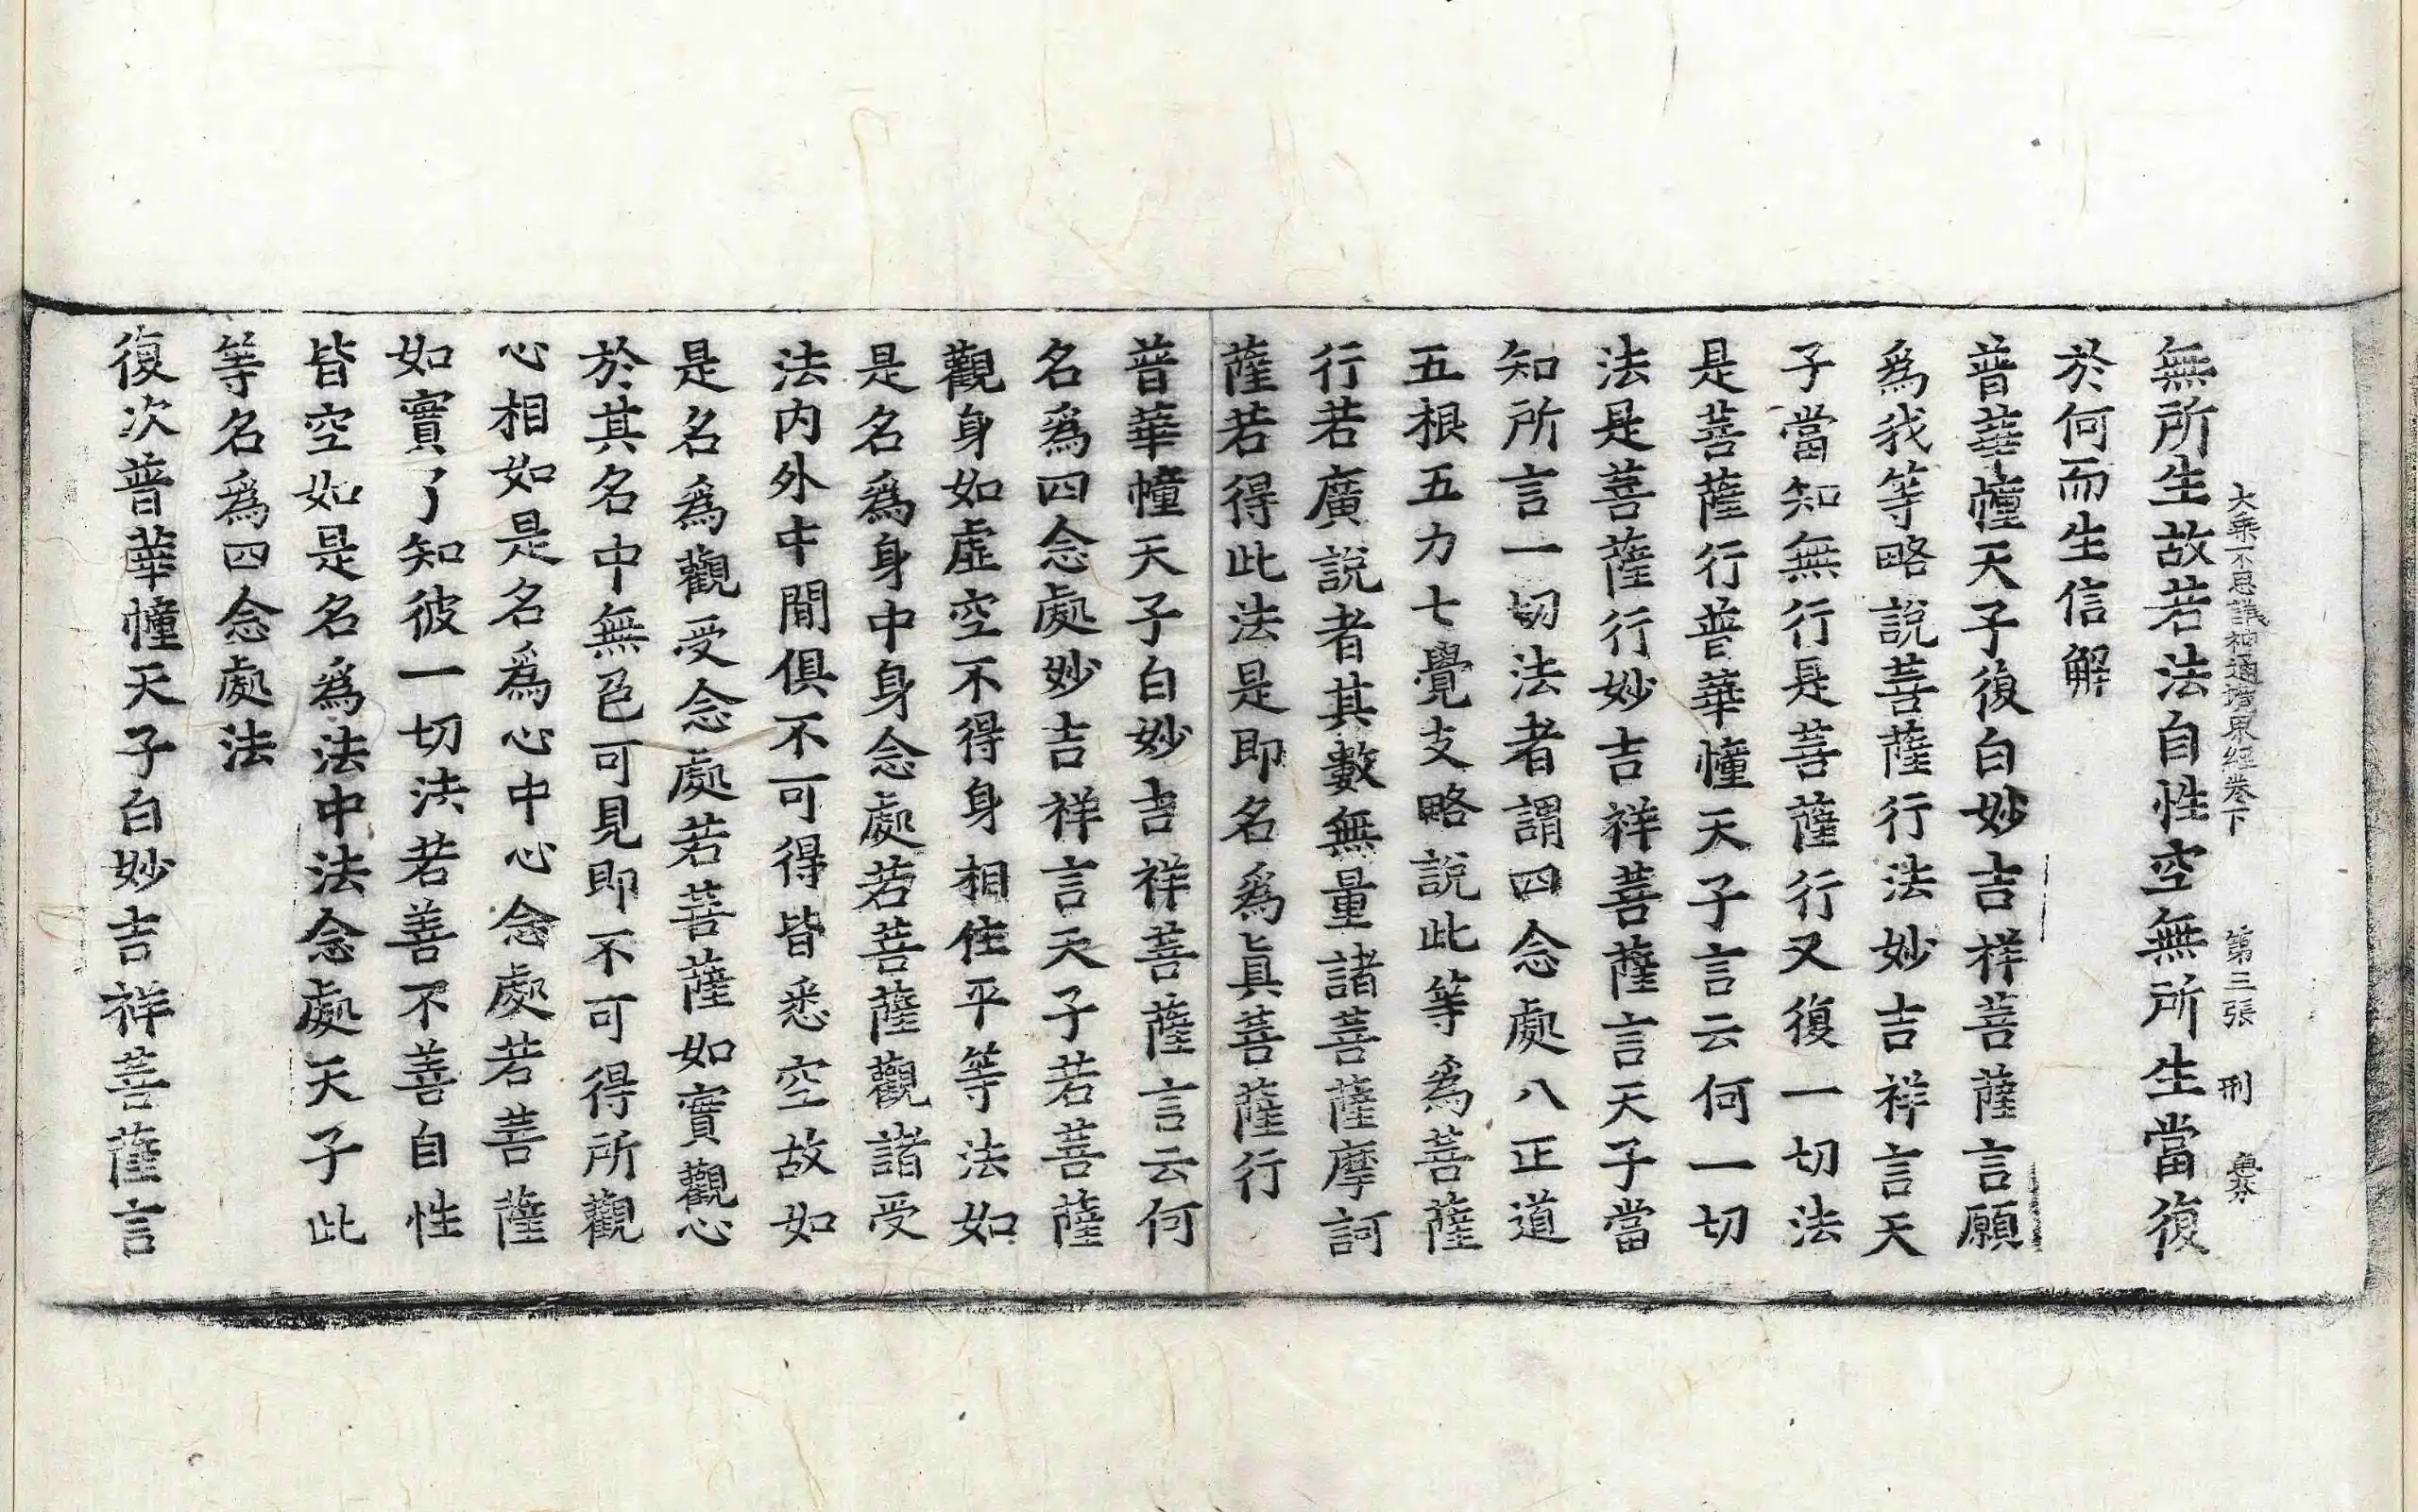 大乘不思議神通境界經卷下　第三張　刑
無所生故若法自性空無所生當復
於何而生信解
普華幢天子復白妙吉祥菩薩言願
爲我等略說菩薩行法妙吉祥言天
子當知無行是菩薩行又復一切法
是菩薩行普華幢天子言云何一切
法是菩薩行妙吉祥菩薩言天子當
知所言一切法者謂四念處八正道
五根五力七覺支略說此等爲菩薩
行若廣說者其數無量諸菩薩摩訶
薩若得此法是即名爲眞菩薩行
普華幢天子白妙吉祥菩薩言云何
名爲四念處妙吉祥言天子若菩薩
觀身如虛空不得身相住平等法如
是名爲身中身念處若菩薩觀諸受
法内外中間俱不可得皆悉空故如
是名爲觀受念處若菩薩如實觀心
於其名中無色可見即不可得所觀
心相如是名爲心中心念處若菩薩
如實了知彼一切法若善不善自性
皆空如是名爲法中法念處天子此
等名爲四念處法
復次普華幢天子白妙吉祥菩薩言